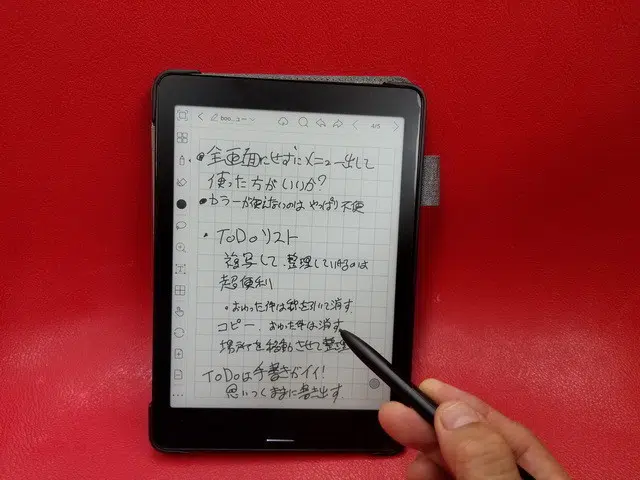 4/5
全画面にせずにメニュー出して
使った方がいいか?
●カラーが使えないのは やっぱり不便
・ToDoリスト
複写して、整理していけるのは
超便利
・おわった件は線を引いて消す
コピー、おわった件は消す
場所を移動させて整理
ToDoは手書きがイイ!
思いつくままに書き出す